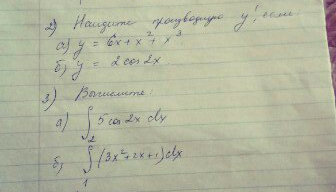 2) Найдите производную y', если
а) y = 6x + x² + x³
б) y = 2 cos 2x
3) Вычислите:
а) ∫₂ 5 cos 2x dx
б) ∫₁ (3x² + 2x + 1) dx